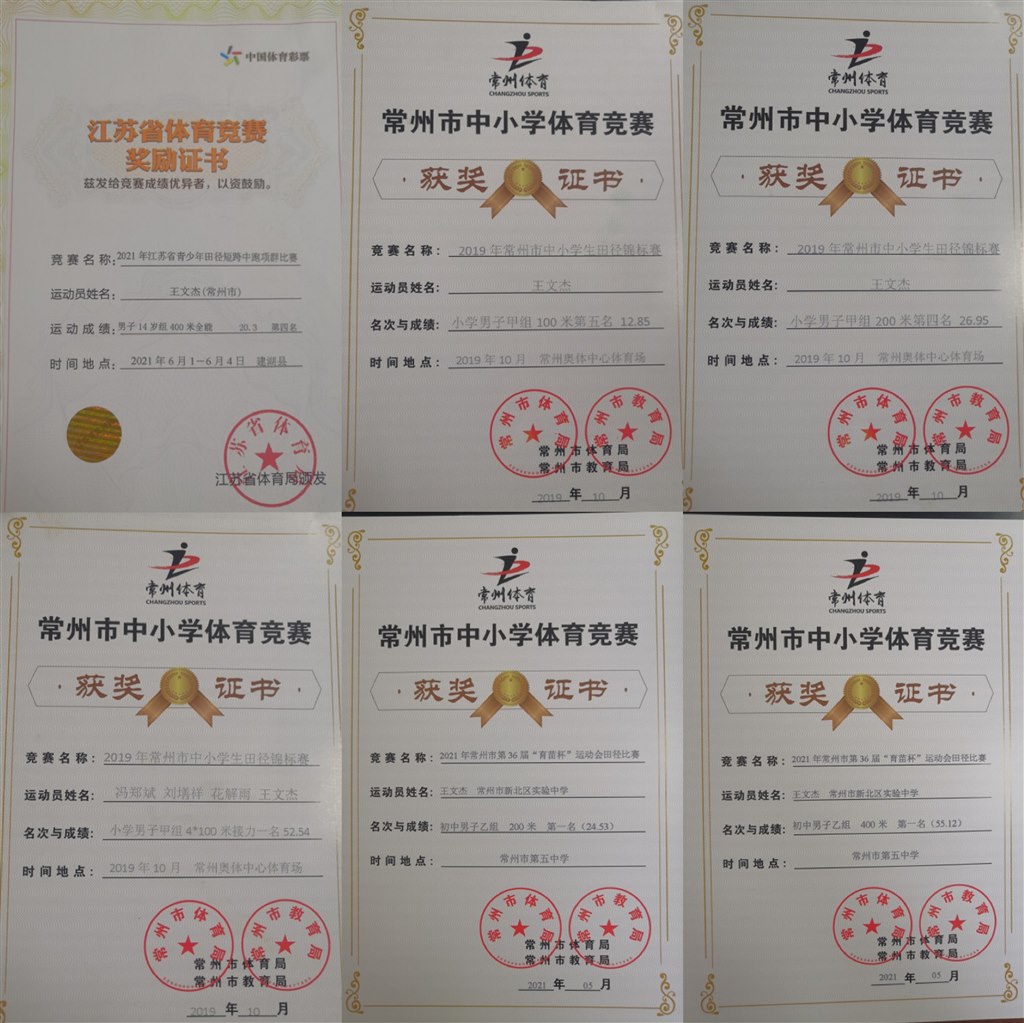 中国体育彩票
江苏省体育竞赛
奖励证书
兹发给竞赛成绩优异者，以资鼓励。
竞赛名称: 2021 年江苏省青少年田径短跨中跑项群比赛
运动员姓名: 王文杰(常州市)
运动成绩: 男子 14 岁组 400 米全能 20.3 第四名
时间地点: 2021 年 6 月 1－6 月 4 日 建湖县
江苏省体育局颁发
常州体育
CHANGZHOU SPORTS
常州市中小学体育竞赛
获奖证书
竞赛名称: 2019 年常州市中小学生田径锦标赛
运动员姓名: 王文杰
名次与成绩: 小学男子甲组 100 米第五名 12.85
时间地点: 2019 年 10 月 常州奥体中心体育场
常州市体育局
常州市教育局
常州市体育局
常州市教育局
2019 年 10 月
常州体育
CHANGZHOU SPORTS
常州市中小学体育竞赛
获奖证书
竞赛名称: 2019 年常州市中小学生田径锦标赛
运动员姓名: 王文杰
名次与成绩: 小学男子甲组 200 米第四名 26.95
时间地点: 2019 年 10 月 常州奥体中心体育场
常州市体育局
常州市教育局
常州市体育局
常州市教育局
2019 年 10 月
常州体育
CHANGZHOU SPORTS
常州市中小学体育竞赛
获奖证书
竞赛名称: 2019 年常州市中小学生田径锦标赛
运动员姓名: 冯郑斌 刘墡祥 花解雨 王文杰
名次与成绩: 小学男子甲组 4*100 米接力一名 52.54
时间地点: 2019 年 10 月 常州奥体中心体育场
常州市体育局
常州市教育局
常州市体育局
常州市教育局
2019 年 10 月
常州体育
CHANGZHOU SPORTS
常州市中小学体育竞赛
获奖证书
竞赛名称: 2021 年常州市第 36 届“育苗杯”运动会田径比赛
运动员姓名: 王文杰 常州市新北区实验中学
名次与成绩: 初中男子乙组 200 米 第一名 (24.53)
时间地点: 常州市第五中学
常州市体育局
常州市教育局
常州市体育局
常州市教育局
2021 年 05 月
常州体育
CHANGZHOU SPORTS
常州市中小学体育竞赛
获奖证书
竞赛名称: 2021 年常州市第 36 届“育苗杯”运动会田径比赛
运动员姓名: 王文杰 常州市新北区实验中学
名次与成绩: 初中男子乙组 400 米 第一名 (55.12)
时间地点: 常州市第五中学
常州市体育局
常州市教育局
常州市体育局
常州市教育局
2021 年 05 月